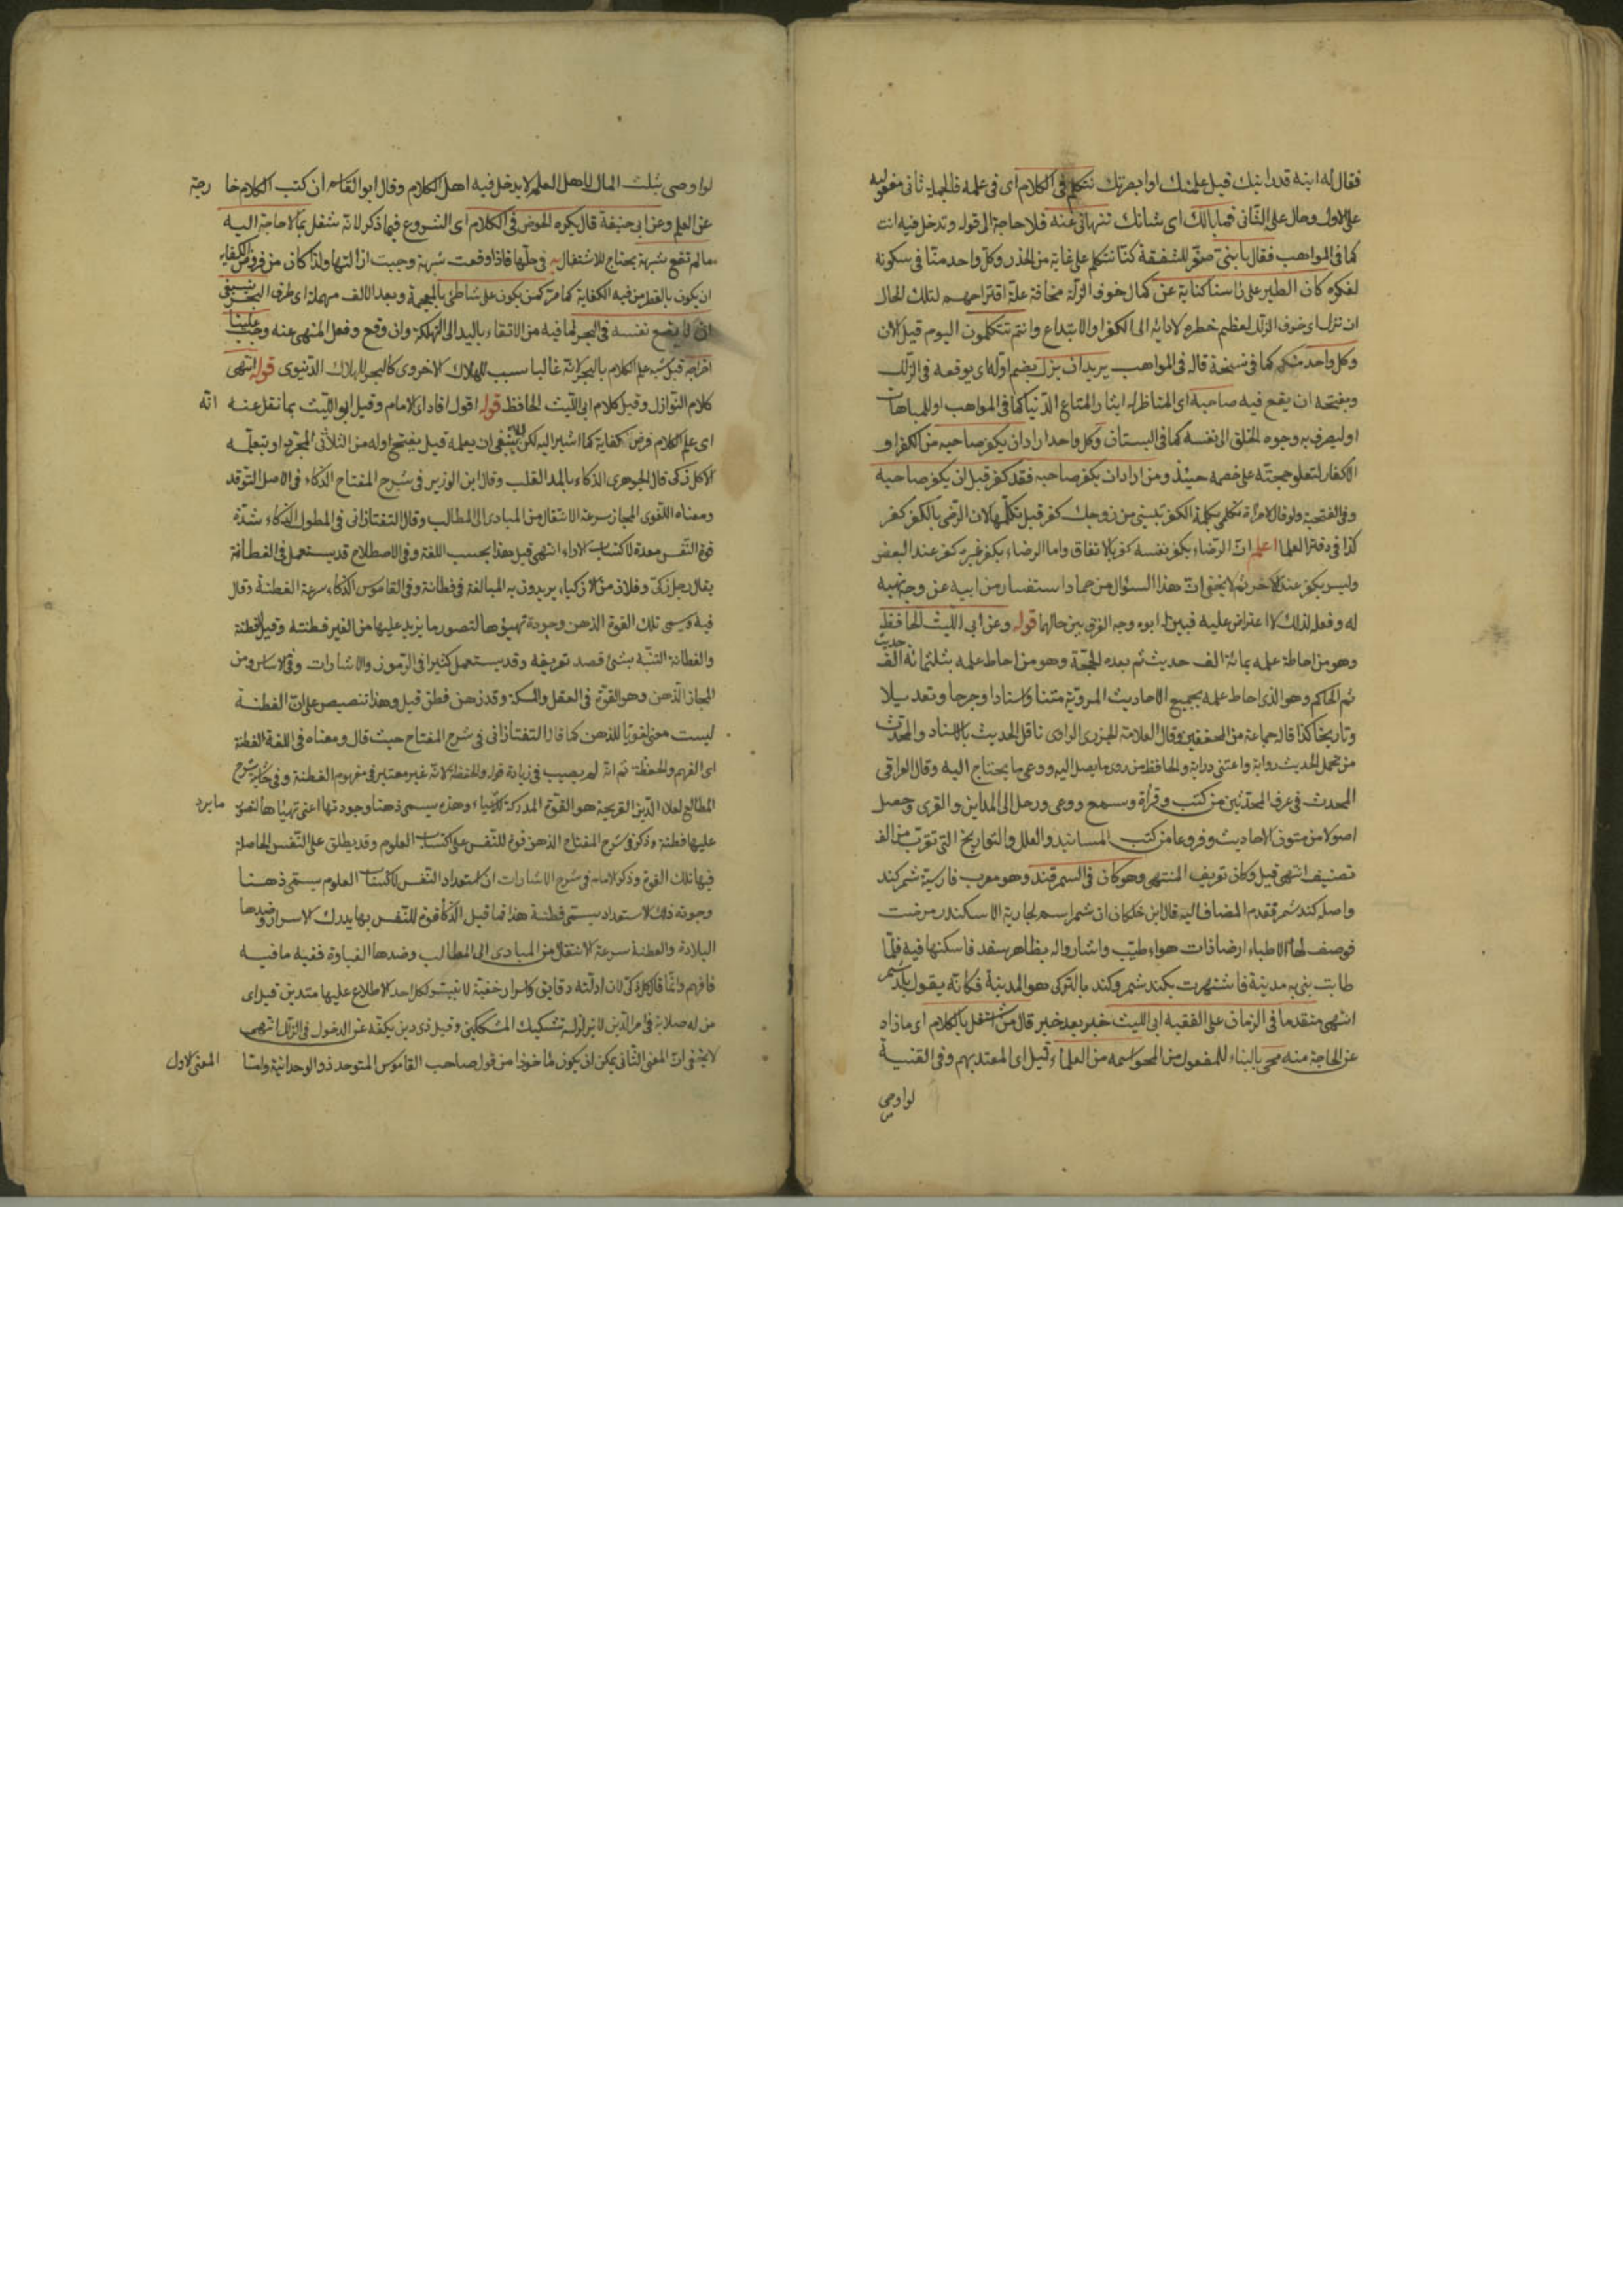 فقال له ابنه قد رايتك قيل علمتك او ابصرتك تتكلم فى الكلام اى فى علمه فالجملة ثانى مفعوليه
على الاول وحال على الثانى فما بالك اى شانك تنهانى عنه فلا حاجة الى قوله وتدخل فيه انت
كما فى المواهب فقال يا بنىّ صغّر للشفقة كنّا نتكلم على غاية من الحذر وكل واحد منّا فى سكونه
لفكره كان الطير على راسنا كناية عن كمال خوف الزلّة مخافة علّة اقتراحهم لتلك الحال
ان نزل اى خوف الزلل لعظيم خطره لادائه الى الكفر او الابتداع وانتم تتكلمون اليوم قيل الان
وكل واحد منكم كما فى نسخة قال فى المواهب يريد ان يزلّ بضم اوله اى يوقعه فى الزلل
وبفتحه ان يقع فيه صاحبه اى المناظر له ايثار المتاع الدنيا كما فى المواهب او للمباهات
او ليصرف به وجوه الخلق الى نفسه كما فى البستان وكل واحد اراد ان يكفر صاحبه من الكفر او
الاكفار لتعلو حجته على خصمه حينئذ ومن اراد ان يكفر صاحبه فقد كفر قبل ان يكفر صاحبه
وفى الفتحية ولو قال لامراة تكلمى بكلمة الكفر تبينى من زوجك كفر قبل تكلمها لان الرضى بالكفر كفر
كذا فى دفتر العلما اعلم ان الرضاء بكفر نفسه كفر بالاتفاق واما الرضاء بكفر غيره كفر عند البعض
وليس بكفر عند الاخر ثم لا يخفى ان هذا السئوال من حماد استفسار من ابيه عن وجه نهيه
له وفعله لذلك لا اعتراض عليه فبين له ابوه وجه الفرق بين حالهما قوله وعن ابى الليث الحافظ
وهو من احاط علمه بمائة الف حديث ثم بعده الحجّة وهو من احاط علمه بثلثمائة الف حديث
ثم الحاكم وهو الذى احاط علمه بجميع الاحاديث المروية متنا واسنادا وجرحا وتعديلا
وتاريخا كذا قاله جماعة من المحققين وقال العلامة الجزرى الراوى ناقل الحديث بالاسناد والمحدث
من تحمل الحديث رواية واعتنى دراية والحافظ من روى ما يصل اليه ووعى ما يحتاج اليه وقال العراقى
المحدث فى عرف المحدّثين من كتب وقرأه وسمع ووعى ورحل الى المداين والقرى وحصل
اصولا من متون الاحاديث وفروعا من كتب المسانيد والعلل والتواريخ التى تقرب من الف
تصنيف انتهى قيل وكان تعريف المنتهى وهو كان فى السمرقند وهو معرب فارسية شمركند
واصله كند شمر فقدم المضاف اليه قال ابن خلكان ان شمر اسم لجارية الاسكندر مرضت
فوصف لها الاطباء ارضا ذات هواء طيّب واشار واله بظاهر سغد فاسكنها فيه فلمّا
طابت بنى به مدينة فاشتهرت بكند شمر وكند بالتركى هو المدينة فكانه يقول بلد شمر
انتهى متقدما فى الزمان على الفقيه ابى الليث خبر بعد خبر قال من اشتغل بالكلام اى ما زاد
عن الحاجة منه محى بالبناء للمفعول من المحو اسمه من العلماء قيل اى المعتد بهم وفى القنية
لو اوصى
لو اوصى بثلث المال لاهل العلم لا يدخل فيه اهل الكلام وقال ابو القاسم ان كتب الكلام خارجة
عن العلم وعن ابى حنيفة قال يكره الخوض فى الكلام اى الشروع فيما ذكر لانه شغل بما لا حاجة اليه
ما لم تقع شبهة يحتاج للاشتغال به فى حلّها فاذا وقعت شبهة وجبت ازالتها ولذا كان من فروض الكفاية
ان يكون بالقطر من فيه الكفاية كما مرّ كمن يكون على شاطئ بالمعجمة وبعد الالف مهملة اى طرف البحر ينبغى
ان لا يضع نفسه فى البحر لما فيه من الالقاء باليد الى التهلكة وان وقع وفعل المنهى عنه وجب علينا
اخراجه قيل شبه علم الكلام بالبحر لانه غالبا سبب للهلاك الاخروى كالبحر للهلاك الدنيوى قوله انتهى
كلام النوازل وقيل كلام ابى الليث الحافظ قوله اقول افاد اى الامام وقيل ابو الليث بما نقل عنه انه
اى علم الكلام فرض كفاية كما اشير اليه لكن لا ينبغى ان يعلمه قيل بفتح اوله من الثلاثى المجرد او يتعلمه
الا كل ذكى قال الجوهرى الذكاء بالمد القلب وقال ابن الوزير فى شرح المفتاح الذكاء فى الاصل التوقد
ومعناه اللغوى المجاز سرعة الانتقال من المبادى الى المطالب وقال التفتازانى فى المطول الذكاء شدّة
قوة النفس معدة لاكتساب الاراء انتهى قيل هذا بحسب اللغة وفى الاصطلاح قد يستعمل فى الفطانة
يقال رجل ذكىّ وفلان من الاذكياء يريدون به المبالغة فى فطانة وفى القاموس الذكاء سرعة الفطنة وقال
فيه ويسمى تلك القوة الذهن وجودة تهيؤها لتصور ما يزيد عليها من الغير فطنته وقيل الفطنة
والفطانة التنبّه بشئ قصد تعريفه وقد يستعمل كثيرا فى الرموز والاشارات وفى الاساس ومن
المجاز الذهن وهو القوة فى العقل والمسكة وقد ذهن فطن قيل وهذا تنصيص على ان الفطنة
ليست معنى لغويا للذهن كما قال التفتازانى فى شرح المفتاح حيث قال ومعناه فى اللغة الفطنة
اى الفهم والحفظة ثم انه لم يصيب فى زيادة قوله والحفظة لانه غير معتبر فى مفهوم الفطنة وفى شرح
المطالع لعلاء الدين القريحة هو القوة المدركة للاشياء وهذه يسمى ذهنا وجودتها اعنى تهيأها لتصور ما يرد
عليها فطنة وذكر فى شرح المفتاح الذهن قوة للنفس على اكتساب العلوم وقد يطلق على النفس الحاصلة
فيها تلك القوة وذكر الامام فى شرح الاشارات ان استعداد النفس لاكتساب العلوم يسمّى ذهنا
وجودته ذلك الاستعداد يسمّى فطنة هذا فما قيل الذكاء قوة للنفس بها يدرك الاسرار وضدها
البلادة والفطنة سرعة الانتقال من المبادى الى المطالب وضدها الغباوة ففيه ما فيه
فافهم وانما قال كل ذكى لان ادلته دقايق واسرار خفية لا تتيسر لكل احد الاطلاع عليها متدين قيل اى
من له صلابة فى امر الدين لا تزلزله تشكيك المشككين وقيل ذى دين يكفه عن الدخول فى الزلل انتهى
لا يخفى ان المعنى الثانى يمكن ان يكون ماخوذا من قول صاحب القاموس المتوحد ذو الوحدانية واما المعنى الاول